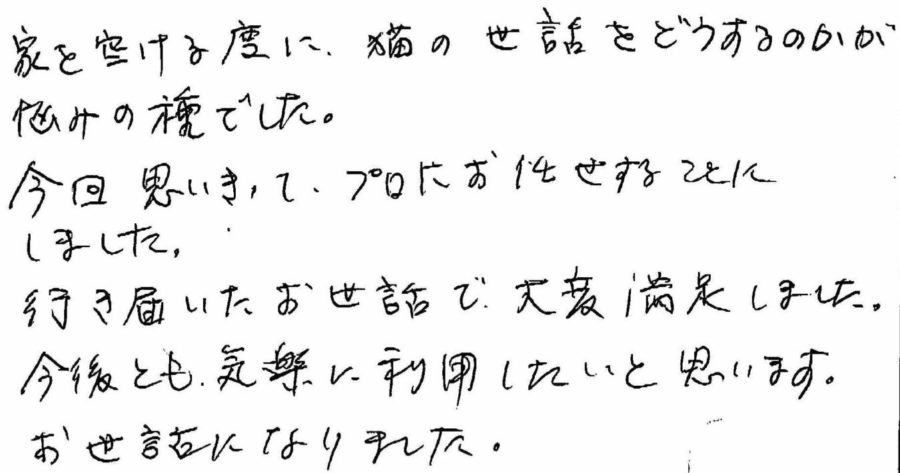 家を空ける度に、猫の世話をどうするのかが
悩みの種でした。
今回思いきって、プロにお任せすることに
しました。
行き届いたお世話で、大変満足しました。
今後とも、気楽に利用したいと思います。
お世話になりました。